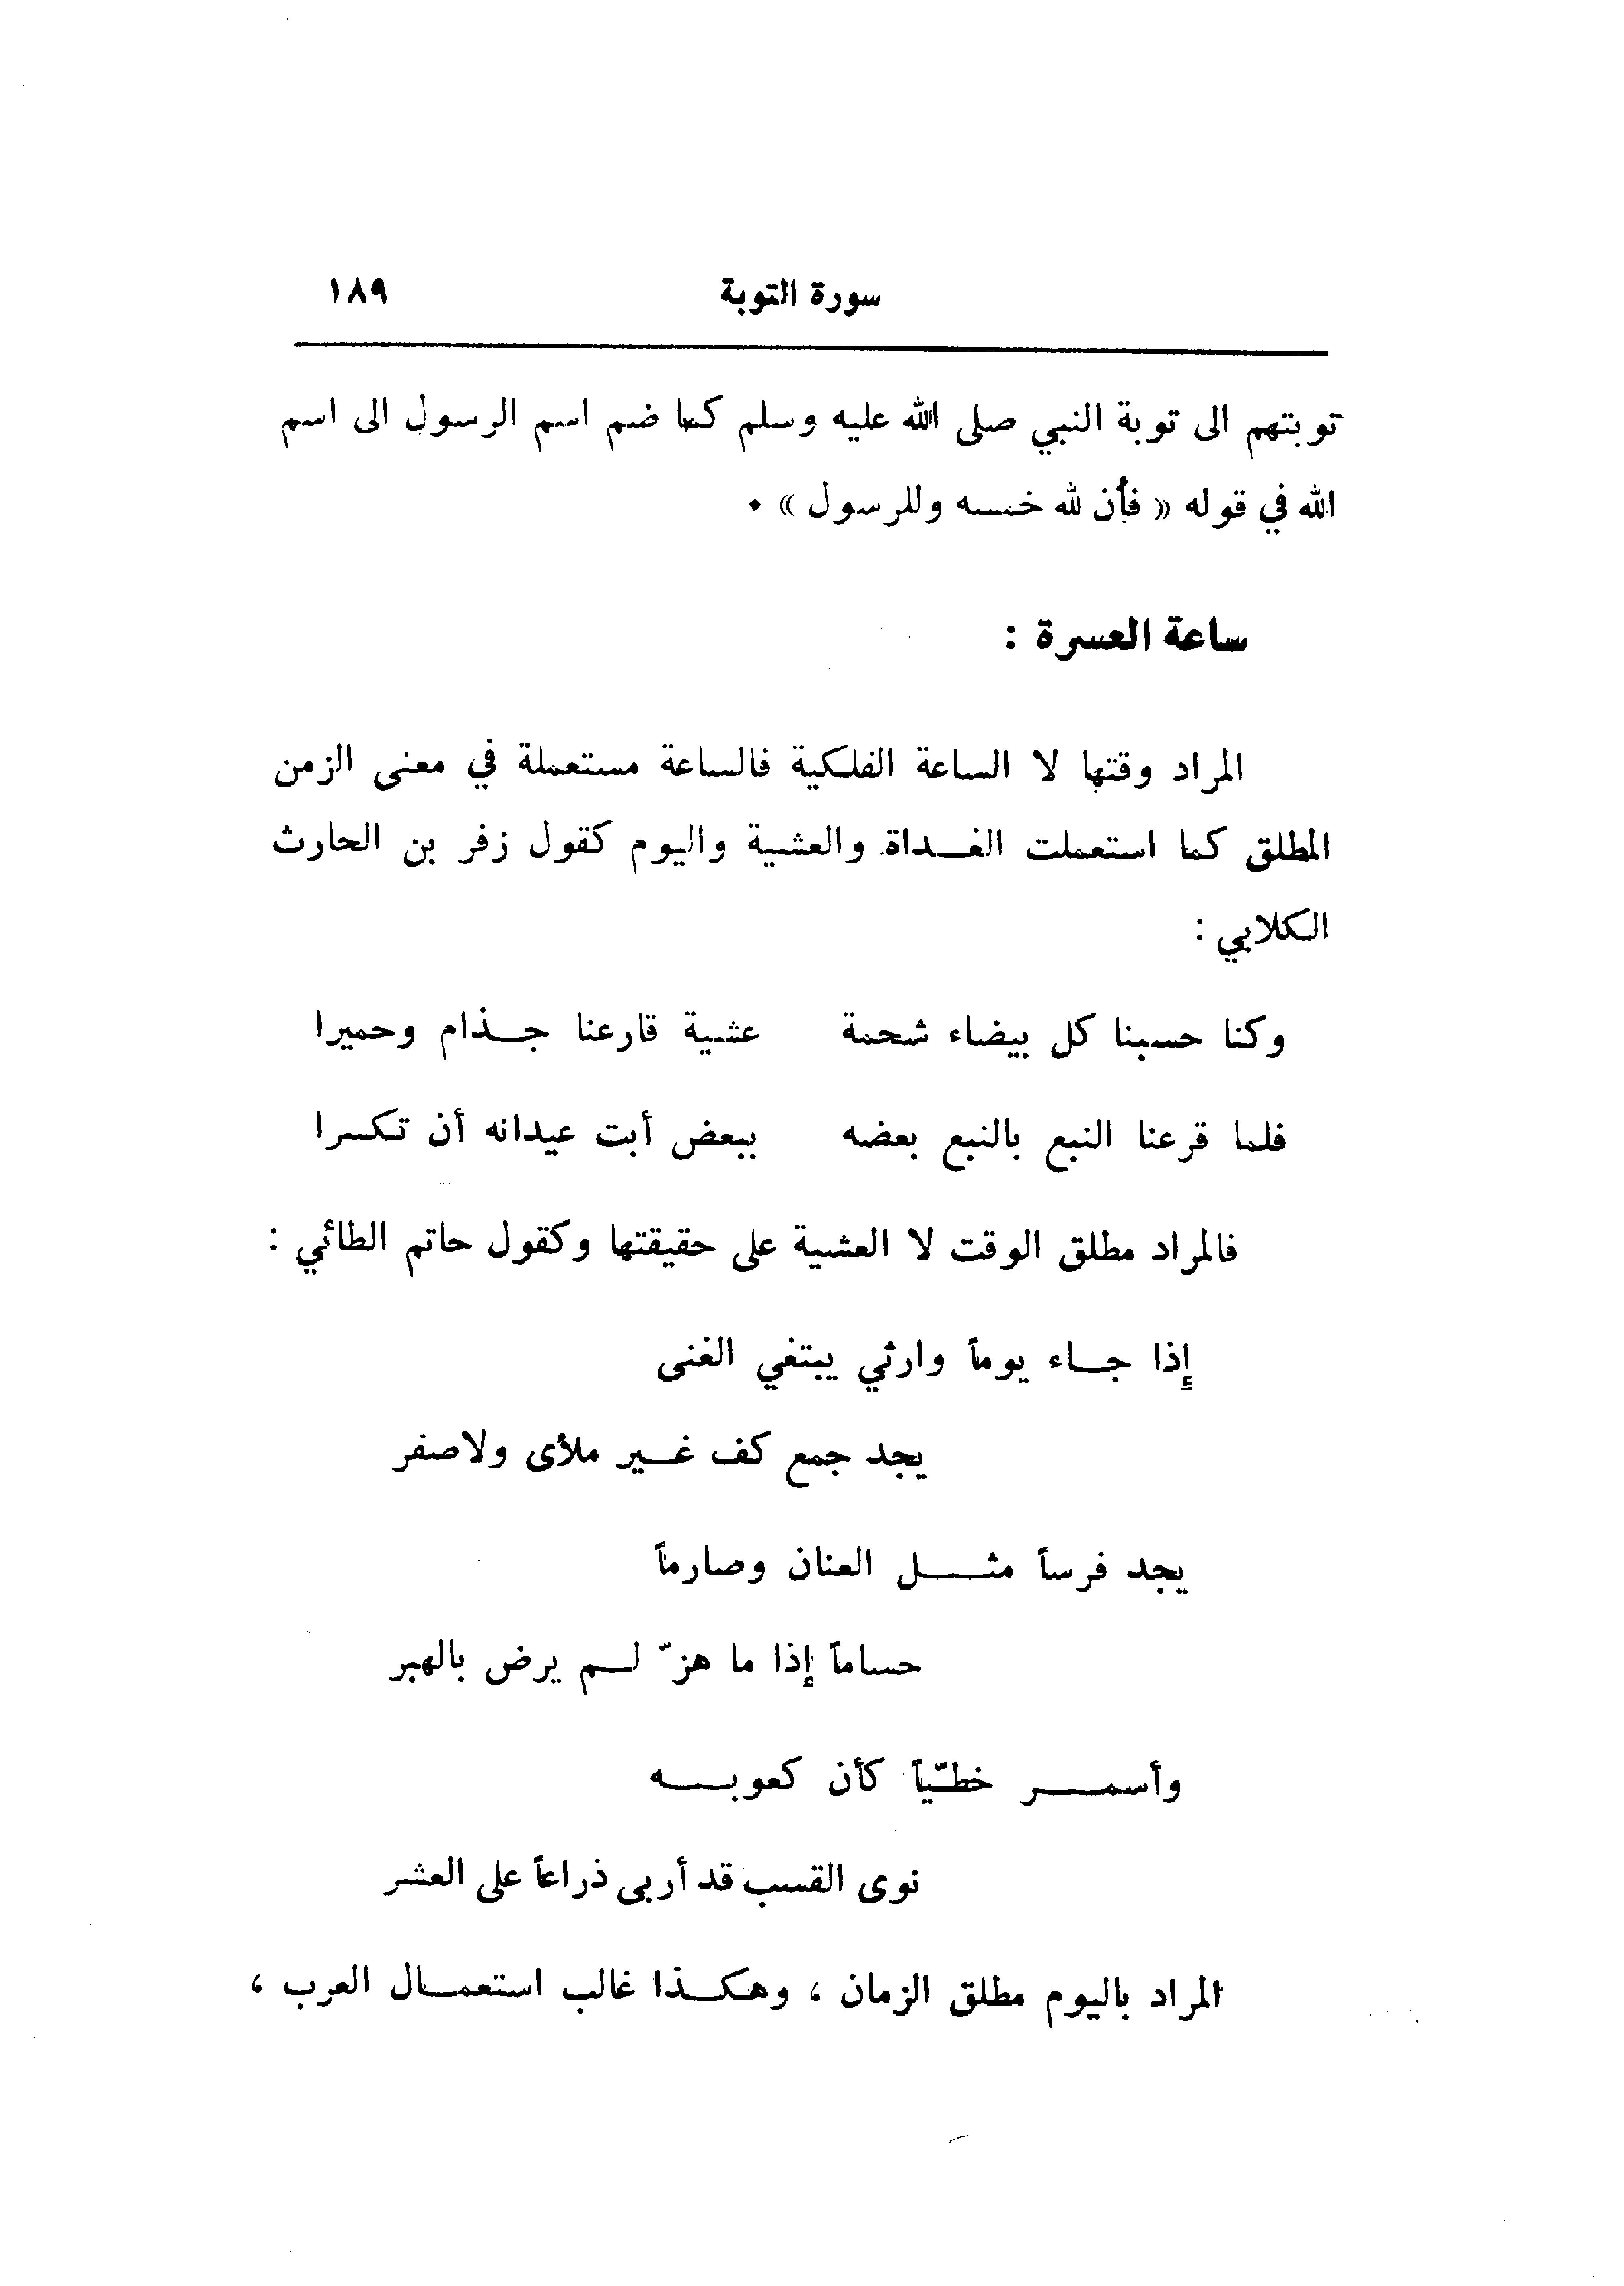 سورة التوبة ١٨٩
توبتهم الى توبة النبي صلى الله عليه وسلم كما ضم اسم الرسول الى اسم
الله في قوله « فأن لله خمسه وللرسول » ٠
ساعة العسرة :
المراد وقتها لا الساعة الفلكية فالساعة مستعملة في معنى الزمن
المطلق كما استعملت الغداة والعشية واليوم كقول زفر بن الحارث
الكلابي :
وكنا حسبنا كل بيضاء شحمة عشية قارعنا جذام وحميرا
فلما قرعنا النبع بالنبع بعضه ببعض أبت عيدانه أن تكسرا
فالمراد مطلق الوقت لا العشية على حقيقتها وكقول حاتم الطائي :
إذا جاء يوماً وارثي يبتغي الغنى
يجد جمع كف غير ملأى ولا صفر
يجد فرساً مثل العنان وصارماً
حساماً إذا ما هزّ لم يرض بالهبر
وأسمر خطّياً كأن كعوبه
نوى القسب قد أربى ذراعاً على العشر
المراد باليوم مطلق الزمان ، وهكذا غالب استعمال العرب ،